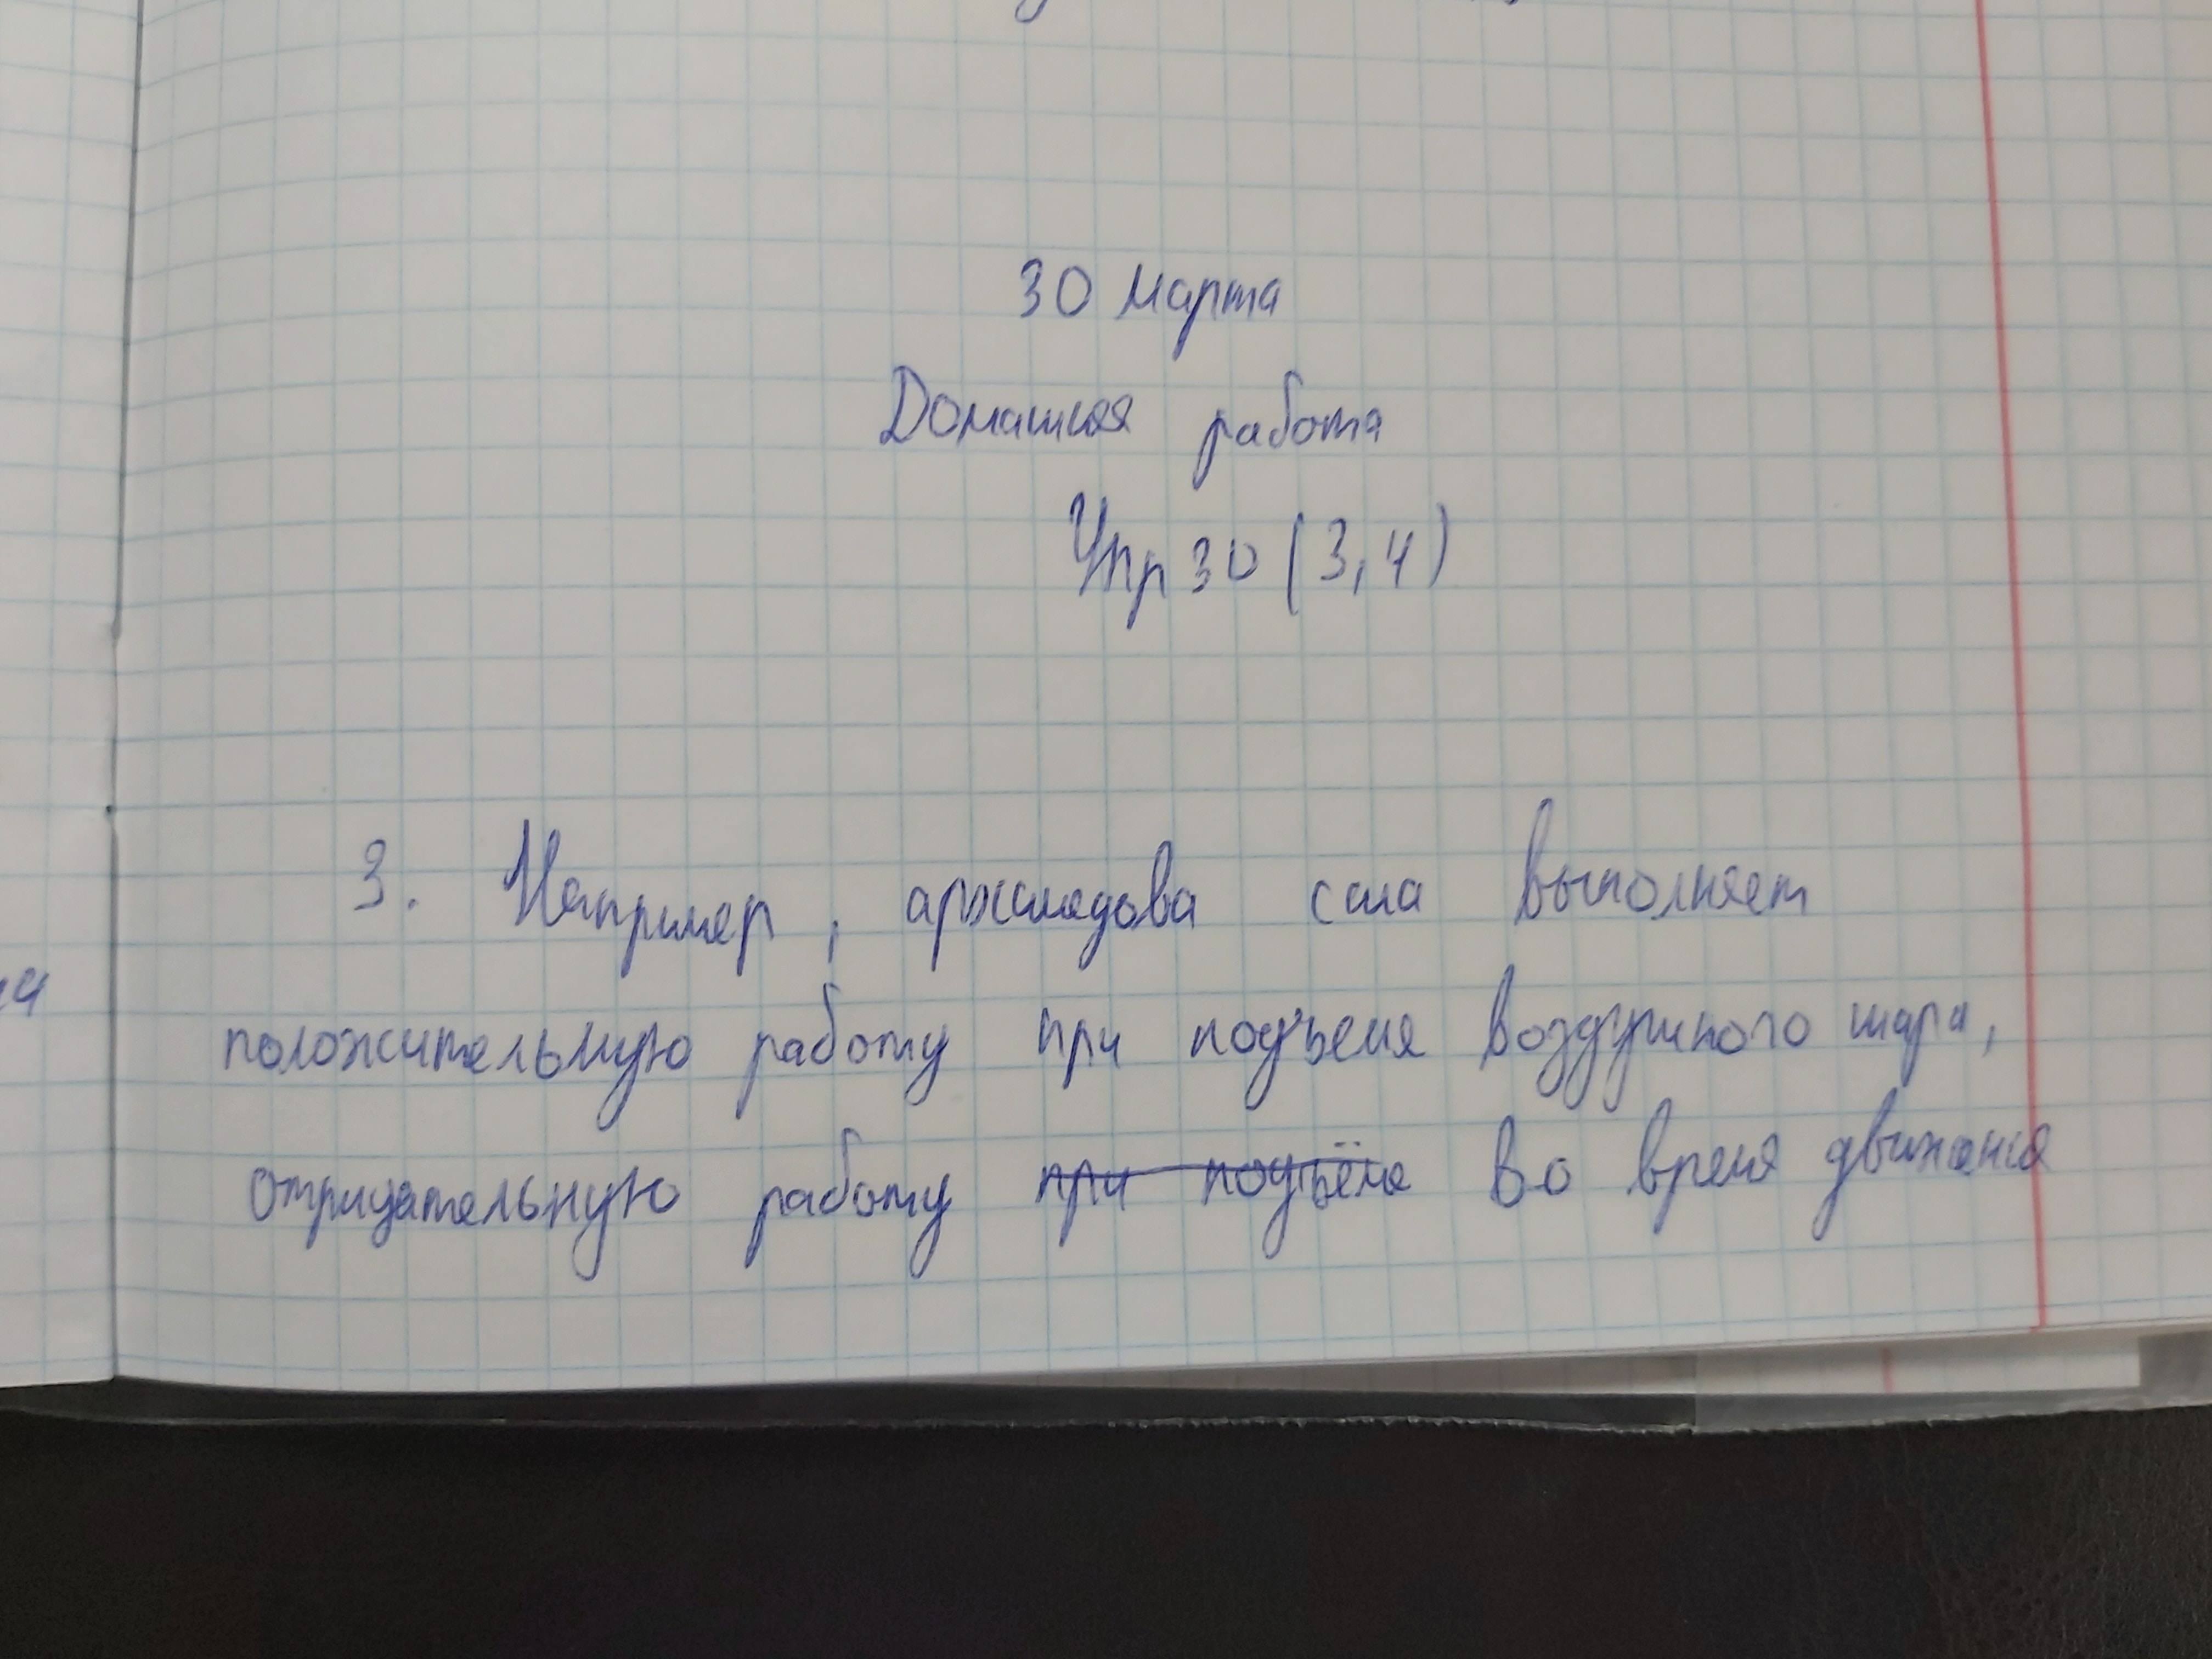 30 марта
Домашняя работа
Упр 30 (3,4)
3. Например, архимедова сила выполняет
положительную работу при подъеме воздушного шара,
отрицательную работу при подъёме во время движения